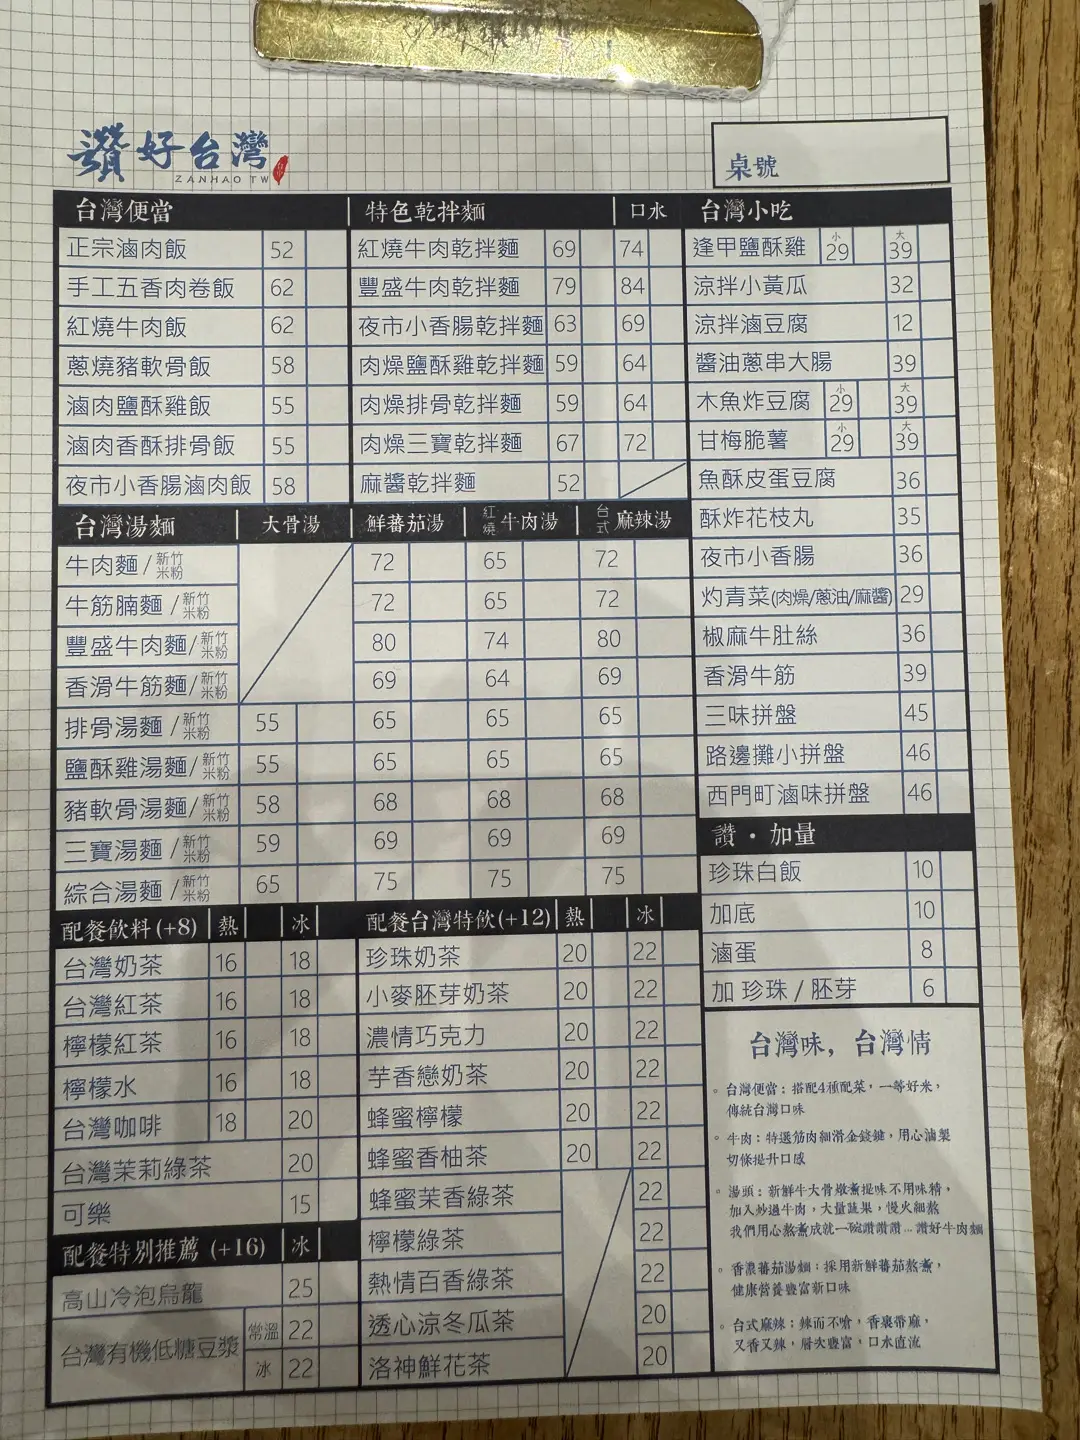 讚好台灣
ZANHAO TW
桌號
台灣便當
正宗滷肉飯 52
手工五香肉卷飯 62
紅燒牛肉飯 62
蔥燒豬軟骨飯 58
滷肉鹽酥雞飯 55
滷肉香酥排骨飯 55
夜市小香腸滷肉飯 58
特色乾拌麵 口水
紅燒牛肉乾拌麵 69 74
豐盛牛肉乾拌麵 79 84
夜市小香腸乾拌麵 63 69
肉燥鹽酥雞乾拌麵 59 64
肉燥排骨乾拌麵 59 64
肉燥三寶乾拌麵 67 72
麻醬乾拌麵 52
台灣小吃
逢甲鹽酥雞 小29 大39
涼拌小黃瓜 32
涼拌滷豆腐 12
醬油蔥串大腸 39
木魚炸豆腐 小29 大39
甘梅脆薯 小29 大39
魚酥皮蛋豆腐 36
酥炸花枝丸 35
夜市小香腸 36
灼青菜(肉燥/蔥油/麻醬) 29
椒麻牛肚絲 36
香滑牛筋 39
三味拼盤 45
路邊攤小拼盤 46
西門町滷味拼盤 46
台灣湯麵 大骨湯 鮮蕃茄湯 紅燒牛肉湯 台式麻辣湯
牛肉麵/新竹米粉 72 65 72
牛筋腩麵/新竹米粉 72 65 72
豐盛牛肉麵/新竹米粉 80 74 80
香滑牛筋麵/新竹米粉 69 64 69
排骨湯麵/新竹米粉 55 65 65 65
鹽酥雞湯麵/新竹米粉 55 65 65 65
豬軟骨湯麵/新竹米粉 58 68 68 68
三寶湯麵/新竹米粉 59 69 69 69
綜合湯麵/新竹米粉 65 75 75 75
讚・加量
珍珠白飯 10
加底 10
滷蛋 8
加 珍珠/胚芽 6
配餐飲料(+8) 熱 冰
台灣奶茶 16 18
台灣紅茶 16 18
檸檬紅茶 16 18
檸檬水 16 18
台灣咖啡 18 20
台灣茉莉綠茶 20
可樂 15
配餐特別推薦 (+16) 冰
高山冷泡烏龍 25
台灣有機低糖豆漿 常溫 22
冰 22
配餐台灣特飲(+12) 熱 冰
珍珠奶茶 20 22
小麥胚芽奶茶 20 22
濃情巧克力 20 22
芋香戀奶茶 20 22
蜂蜜檸檬 20 22
蜂蜜香柚茶 20 22
蜂蜜茉香綠茶 22
檸檬綠茶 22
熱情百香綠茶 22
透心涼冬瓜茶 20
洛神鮮花茶 20
台灣味，台灣情
。台灣便當：搭配4種配菜，一等好米，
傳統台灣口味
。牛肉：特選筋肉細滑金錢鍵，用心滷製
切條提升口感
。湯頭：新鮮牛大骨燉煮提味不用味精，
加入炒過牛肉，大量蔬果，慢火細熬
我們用心熬煮成就一碗讚讚讚...讚好牛肉麵
。香濃蕃茄湯麵：採用新鮮蕃茄熬煮，
健康營養豐富新口味
。台式麻辣：辣而不嗆，香裏帶麻，
又香又辣，層次豐富，口水直流